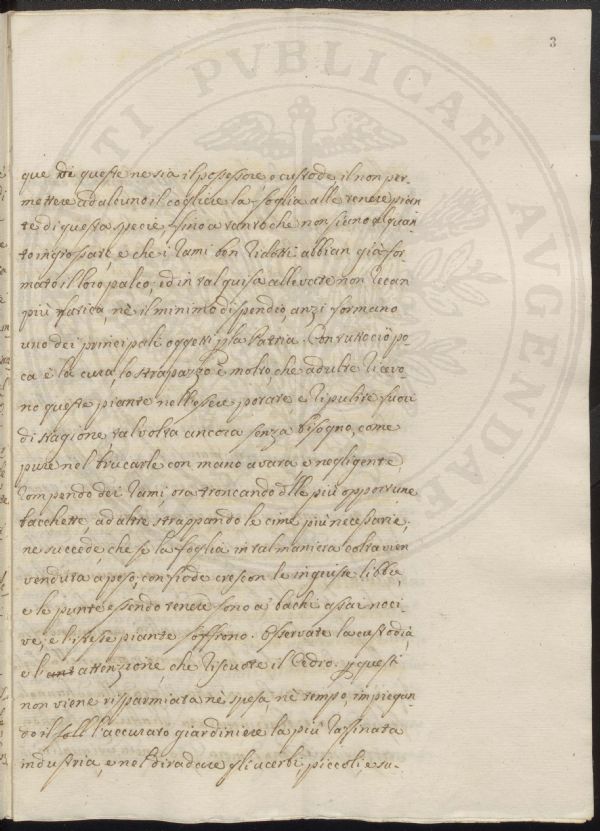 3
que di queste ne sia il possessore o custode il non per-
mettere ad alcuno il cogliere la foglia alle tenere pian-
te di questa specie, sino a tanto che non siano alquan-
to ingrossate, e che i rami ben ridotti abbian già for-
mato il loro palco; ed in tal guisa allevate non recan
più fatica, nè il minimo dispendio, anzi formano
uno dei principali oggetti p la Patria. Con tuttociò po-
ca è la cura, lo strapazzo è molto, che adulte ricevo-
no queste piante nell'essere potate e ripulite fuori
di stagione, talvolta ancora senza bisogno, come
pure nel brucarle con mano avara e negligente,
rompendo dei rami, ora troncando delle più opportune
bacchette, ad altre strappando le cime più necessarie;
ne succede, che se la foglia in tal maniera colta vien
venduta a peso, con frode crescon le ingiuste libbre,
e le punte essendo tenere sono a' bachi assai noci-
ve, e l'istesse piante soffrono. Osservate la custodia,
e l'attenzione, che riscuote il Cedro; p questi
non viene risparmiata nè spesa nè tempo, impiegan-
do il l'accurato giardiniere la più raffinata
industria, e nel diradare gli acerbi, piccoli, e su-
PUBLICAE
AVGENDAE